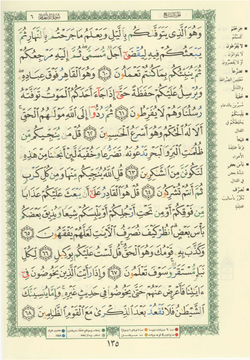 وَهُوَ ٱلَّذِى يَتَوَفَّىٰكُم بِٱلَّيْلِ وَيَعْلَمُ مَا جَرَحْتُم بِٱلنَّهَارِ ثُمَّ
يَبْعَثُكُمْ فِيهِ لِيُقْضَىٰٓ أَجَلٌ مُّسَمًّى ثُمَّ إِلَيْهِ مَرْجِعُكُمْ
ثُمَّ يُنَبِّئُكُم بِمَا كُنتُمْ تَعْمَلُونَ ٦٠ وَهُوَ ٱلْقَاهِرُ فَوْقَ عِبَادِهِۦ
وَيُرْسِلُ عَلَيْكُمْ حَفَظَةً حَتَّىٰٓ إِذَا جَآءَ أَحَدَكُمُ ٱلْمَوْتُ تَوَفَّتْهُ
رُسُلُنَا وَهُمْ لَا يُفَرِّطُونَ ٦١ ثُمَّ رُدُّوٓا۟ إِلَى ٱللَّهِ مَوْلَىٰهُمُ ٱلْحَقِّ
أَلَا لَهُ ٱلْحُكْمُ وَهُوَ أَسْرَعُ ٱلْحَٰسِبِينَ ٦٢ قُلْ مَن يُنَجِّيكُم مِّن
ظُلُمَٰتِ ٱلْبَرِّ وَٱلْبَحْرِ تَدْعُونَهُۥ تَضَرُّعًا وَخُفْيَةً لَّئِنْ أَنجَىٰنَا مِنْ هَٰذِهِۦ
لَنَكُونَنَّ مِنَ ٱلشَّٰكِرِينَ ٦٣ قُلِ ٱللَّهُ يُنَجِّيكُم مِّنْهَا وَمِن كُلِّ كَرْبٍ
ثُمَّ أَنتُمْ تُشْرِكُونَ ٦٤ قُلْ هُوَ ٱلْقَادِرُ عَلَىٰٓ أَن يَبْعَثَ عَلَيْكُمْ عَذَابًا
مِّن فَوْقِكُمْ أَوْ مِن تَحْتِ أَرْجُلِكُمْ أَوْ يَلْبِسَكُمْ شِيَعًا وَيُذِيقَ بَعْضَكُم
بَأْسَ بَعْضٍ ٱنظُرْ كَيْفَ نُصَرِّفُ ٱلْءَايَٰتِ لَعَلَّهُمْ يَفْقَهُونَ ٦٥ وَكَذَّبَ
بِهِۦ قَوْمُكَ وَهُوَ ٱلْحَقُّ قُل لَّسْتُ عَلَيْكُم بِوَكِيلٍ ٦٦ لِّكُلِّ
نَبَإٍ مُّسْتَقَرٌّ وَسَوْفَ تَعْلَمُونَ ٦٧ وَإِذَا رَأَيْتَ ٱلَّذِينَ يَخُوضُونَ فِىٓ
ءَايَٰتِنَا فَأَعْرِضْ عَنْهُمْ حَتَّىٰ يَخُوضُوا۟ فِى حَدِيثٍ غَيْرِهِۦ وَإِمَّا يُنسِيَنَّكَ
ٱلشَّيْطَٰنُ فَلَا تَقْعُدْ بَعْدَ ٱلذِّكْرَىٰ مَعَ ٱلْقَوْمِ ٱلظَّٰلِمِينَ ٦٨
١٣٥